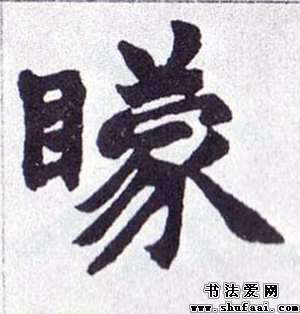 矇
书法爱网
www.shufaai.com